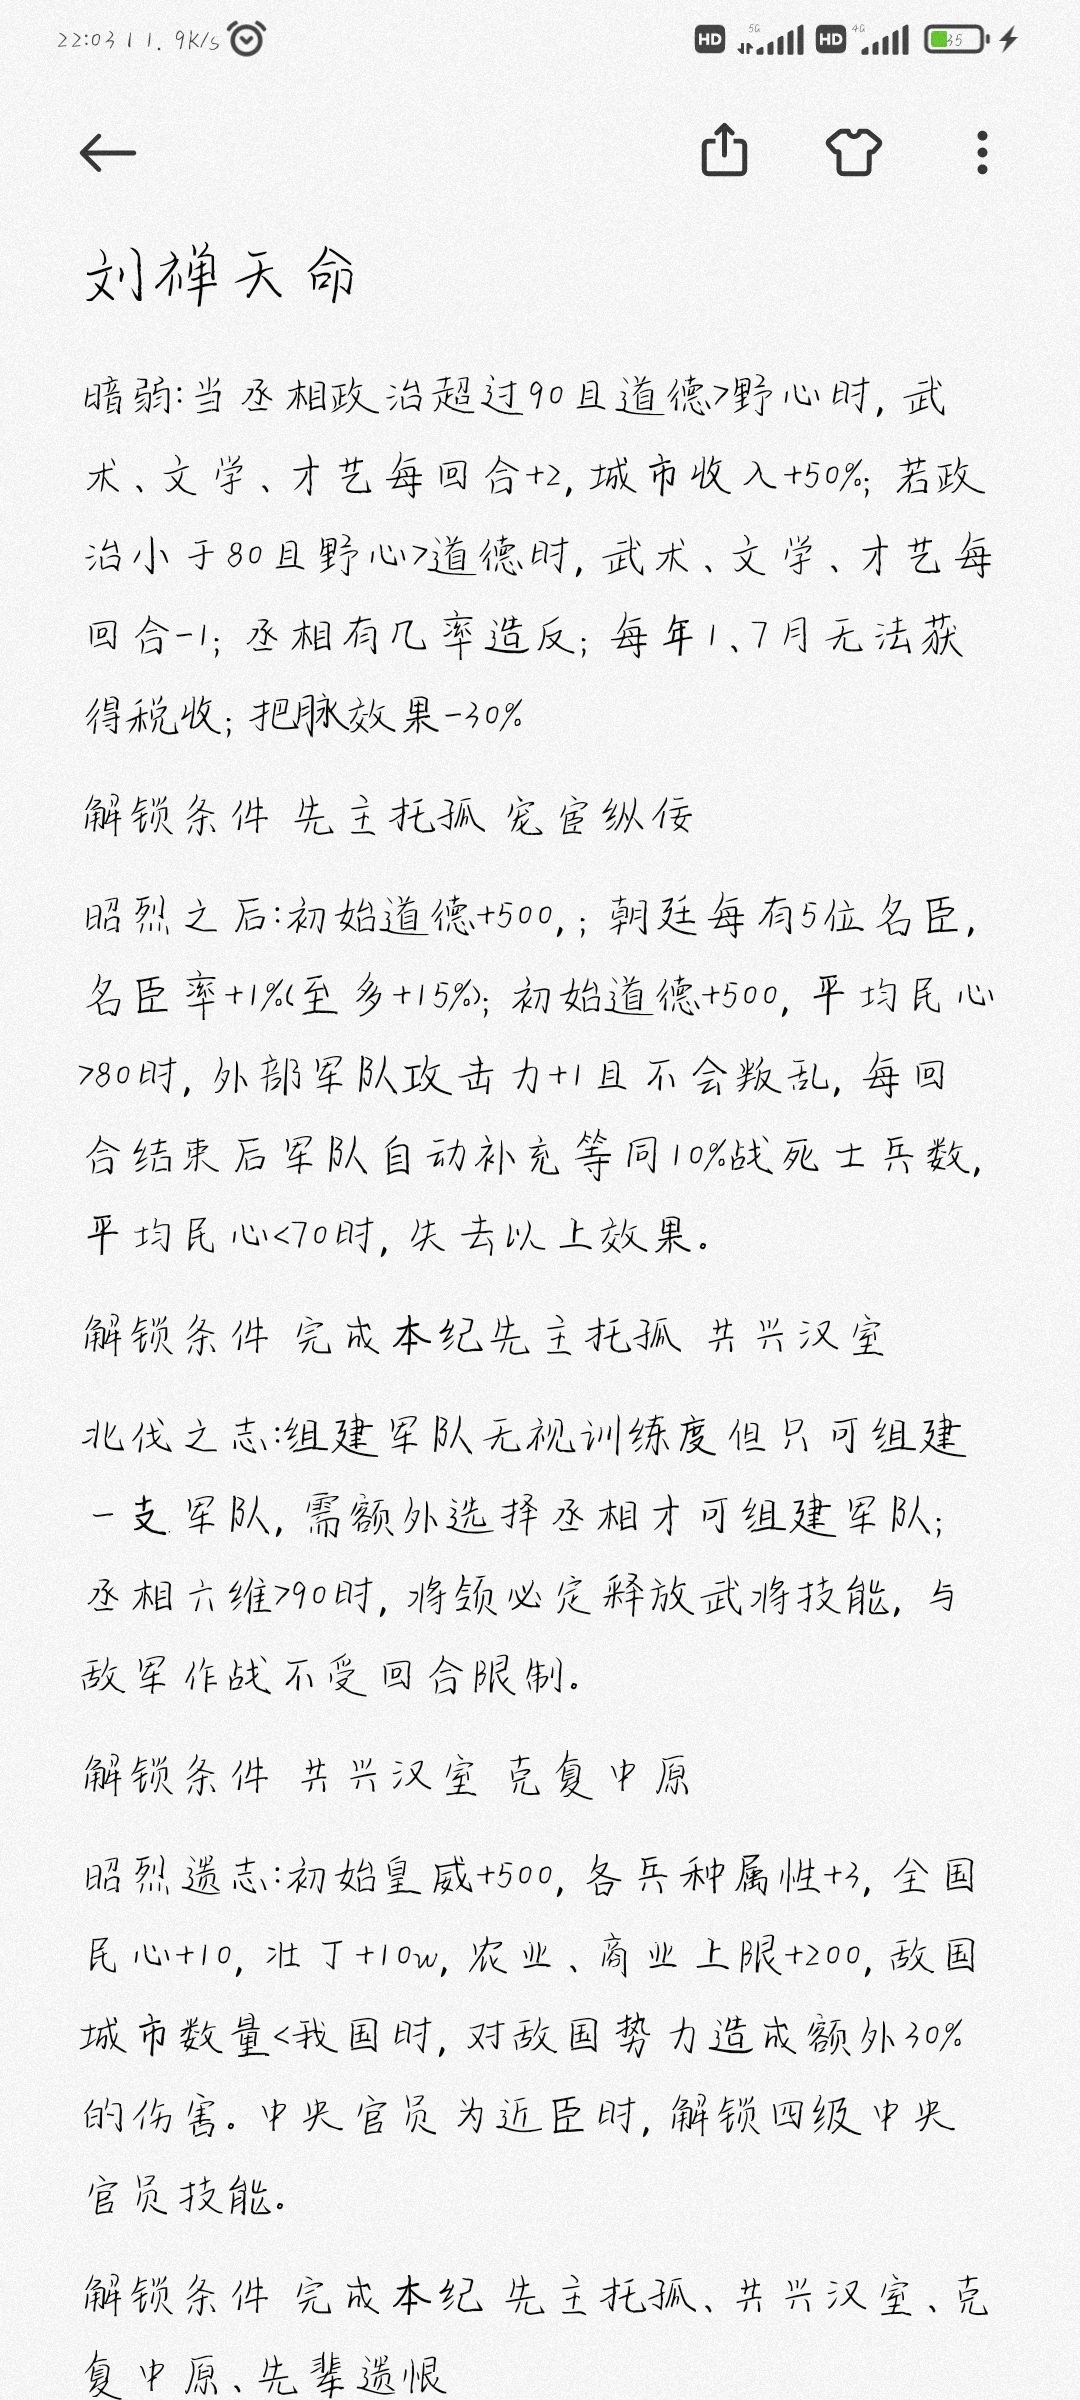 22:03 | 1.9K/s
HD 5G HD 4G 35
刘禅天命
暗弱:当丞相政治超过90且道德>野心时, 武
术、文学、才艺每回合+2, 城市收入+50%; 若政
治小于80且野心>道德时, 武术、文学、才艺每
回合-1; 丞相有几率造反; 每年1、7月无法获
得税收; 把脉效果-30%
解锁条件 先主托孤 宠宦纵佞
昭烈之后:初始道德+500,; 朝廷每有5位名臣,
名臣率+1%(至多+15%); 初始道德+500, 平均民心
>80时, 外部军队攻击力+1且不会叛乱, 每回
合结束后军队自动补充等同10%战死士兵数,
平均民心<70时, 失去以上效果。
解锁条件 完成本纪先主托孤 共兴汉室
北伐之志:组建军队无视训练度但只可组建
一支军队, 需额外选择丞相才可组建军队;
丞相六维>90时, 将领必定释放武将技能, 与
敌军作战不受回合限制。
解锁条件 共兴汉室 克复中原
昭烈遗志:初始皇威+500, 各兵种属性+3, 全国
民心+10, 壮丁+10w, 农业、商业上限+200, 敌国
城市数量<我国时, 对敌国势力造成额外30%
的伤害。中央官员为近臣时, 解锁四级中央
官员技能。
解锁条件 完成本纪 先主托孤、共兴汉室、克
复中原、先辈遗恨